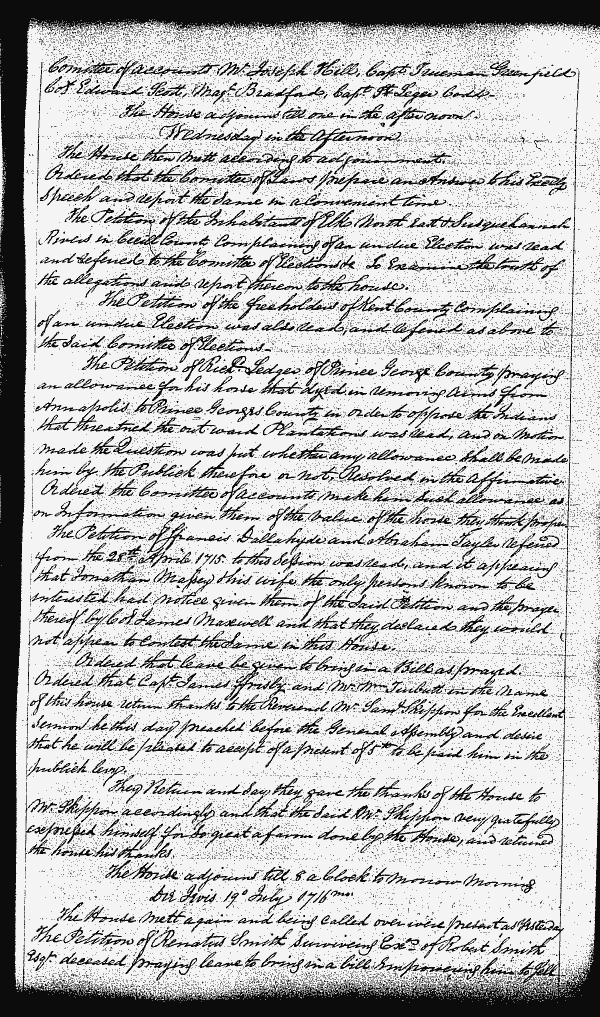 Comittee of accounts Mr. Joseph Hill, Capt. Trueman Greenfield
Col Edward Scott, Majr. Bradford, Capt. St. Leger Codd.
The House adjourns till one in the afternoon.
Wednesday in the Afternoon
The House then mett according to adjournment.
Ordered that the Comittee of Laws prepare an Answer to his Excely
Speech and report the Same in a Convenient time.
The Petition of the Inhabitants of Elk North East & Susquehannah
Rivers in Cecill County Complaining of an undue Election was read
and referred to the Comittee of Elections &c To Examine the truth of
the allegations and report thereon to the house.
The Petition of the freeholders of Kent County Complaining
of an undue Election was also read, and referred as above to
the Said Comittee of Elections.
The Petition of Richd. Ledger of Prince George County praying
an allowance for his horse that dyed in removing Arms from
Annapolis to Prince Georges County in order to oppose the Indians
that threatned the outward Plantations was read, and on Motion
made the Question was put whether any allowance Shall be made
him by the Publick therefore or not, Resolved in the Affirmative.
Ordered the Comittee of accounts make him Such allowance as
on Information given them of the value of the horse they think proper
The Petition of ffrancis Dallahyde and Abraham Tayler referred
from the 28th April 1715 to this Session was read, and it appearing
that Jonathan Massey & his wife the only persons known to be
interested had notice given them of the Said Petition and the prayer
thereof by Col James Maxwell and that they declared they would
not appear to Contest the Same in this House.
Ordered that leave be given to bring in a Bill as prayed.
Ordered that Capt. James ffrisby and Mr. Wm. Turbutt in the name
of this house return thanks to the Reverend Mr. Saml. Skippon for the Excellent
Sermon he this day preached before the General Assembly and desire
that he will be pleased to accept of a present of 5 to be paid him in the
publick levy.
They Return and Say they gave the thanks of the House to
Mr. Skippon accordingly and that the Said Mr. Skippon very gratefully
expressed himself for So great a favour done by the House, and returned
the house his thanks.
The House adjourns till 8 a Clock to morrow Morning
Die Jovis 19o July 1716
The House mett again and being called over were present as Yesterday
The Petition of Renatus Smith Surviveing Exr. of Robert Smith
Esqr. deceased praying leave to bring in a bill Empowering him to Sell